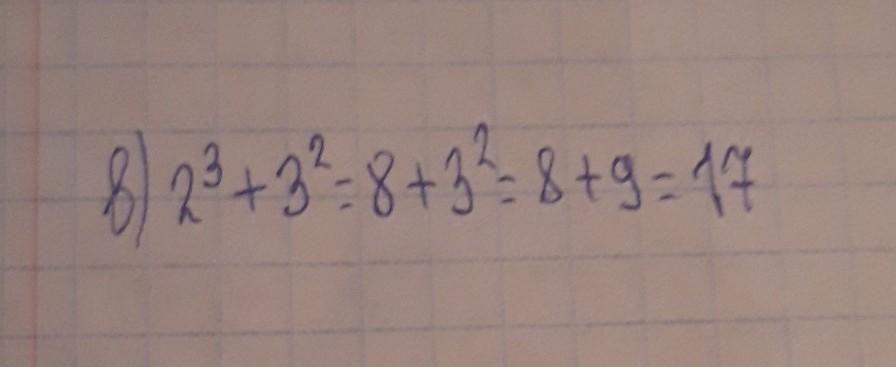 в) 2³+3²=8+3²=8+9=17